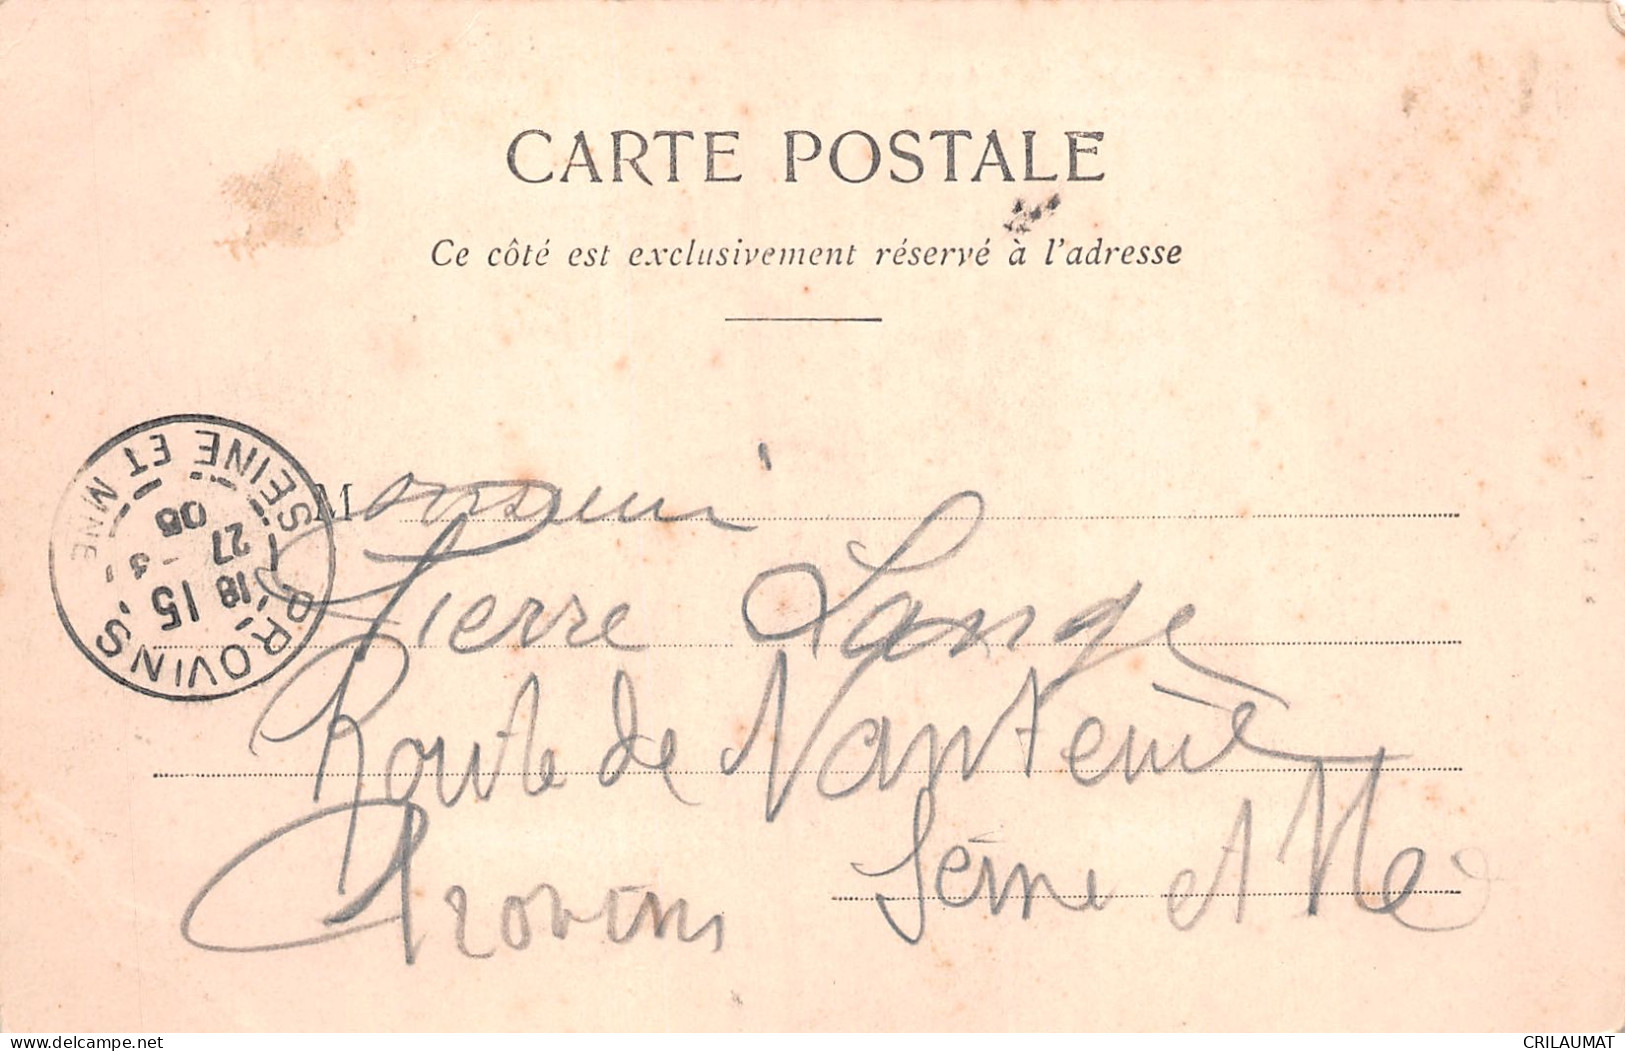 CARTE POSTALE
Ce côté est exclusivement réservé à l'adresse
Monsieur
Pierre Lange
Route de Nanteuil
Provins Seine et Me
PROVINS
18 15
27 -3
05
SEINE ET MNE
delcampe.net
CRILAUMAT